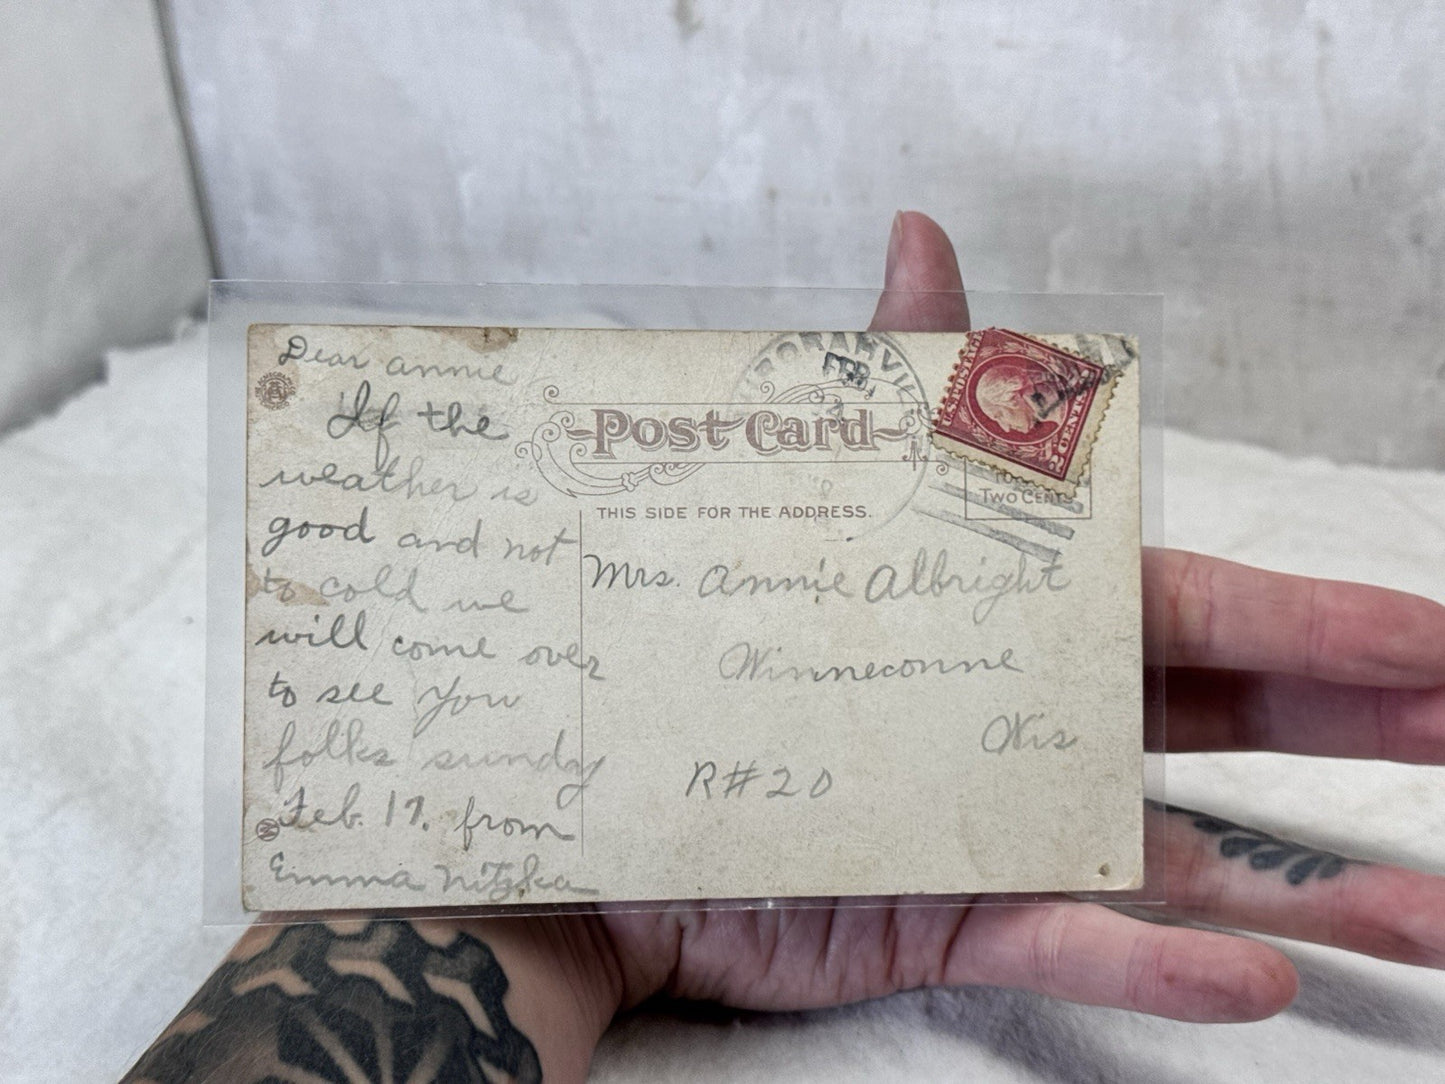 Dear annie
If the
weather is
good and not
to cold we
will come over
to see you
folks sundy
Feb. 17. from
Emma Nitzka
Post Card
THIS SIDE FOR THE ADDRESS.
FEB
U.S. POSTAGE
2 CENTS 2
TWO CENTS
Mrs. annie albright
Winneconne
Wis
R#20